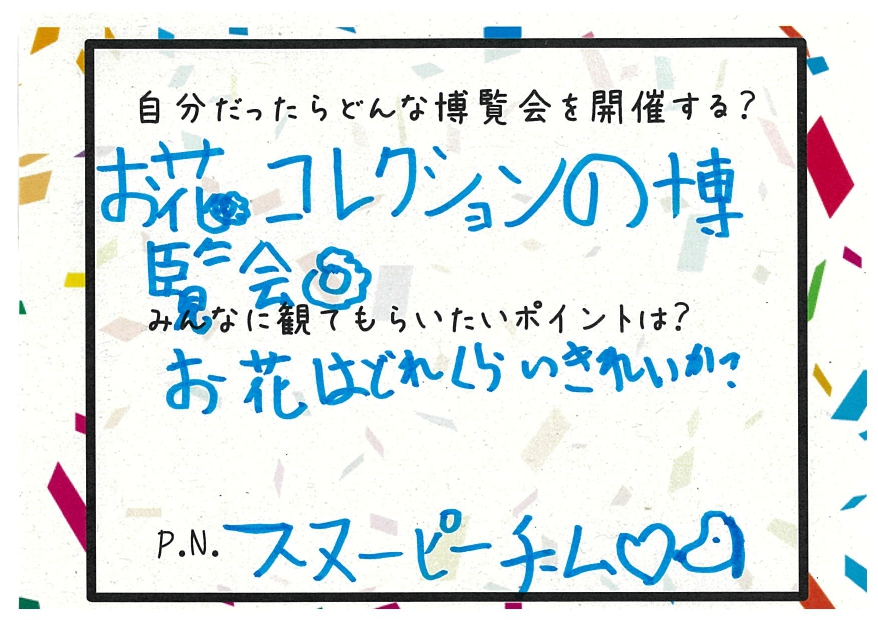 自分だったらどんな博覧会を開催する?
お花コレクションの博
覧会
みんなに観てもらいたいポイントは?
お花はどれくらいきれいか?
P.N. スヌーピーチーム♡